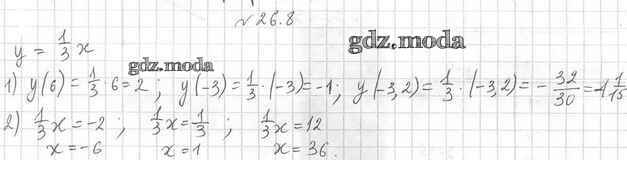 №26.8
gdz.moda
y = 1/3 x
gdz.moda
1) y(6) = 1/3 · 6 = 2 ; y(-3) = 1/3 · (-3) = -1; y(-3,2) = 1/3 · (-3,2) = - 32/30 = -1 1/15
2) 1/3 x = -2 ; 1/3 x = 1/3 ; 1/3 x = 12
x = -6 x = 1 x = 36.